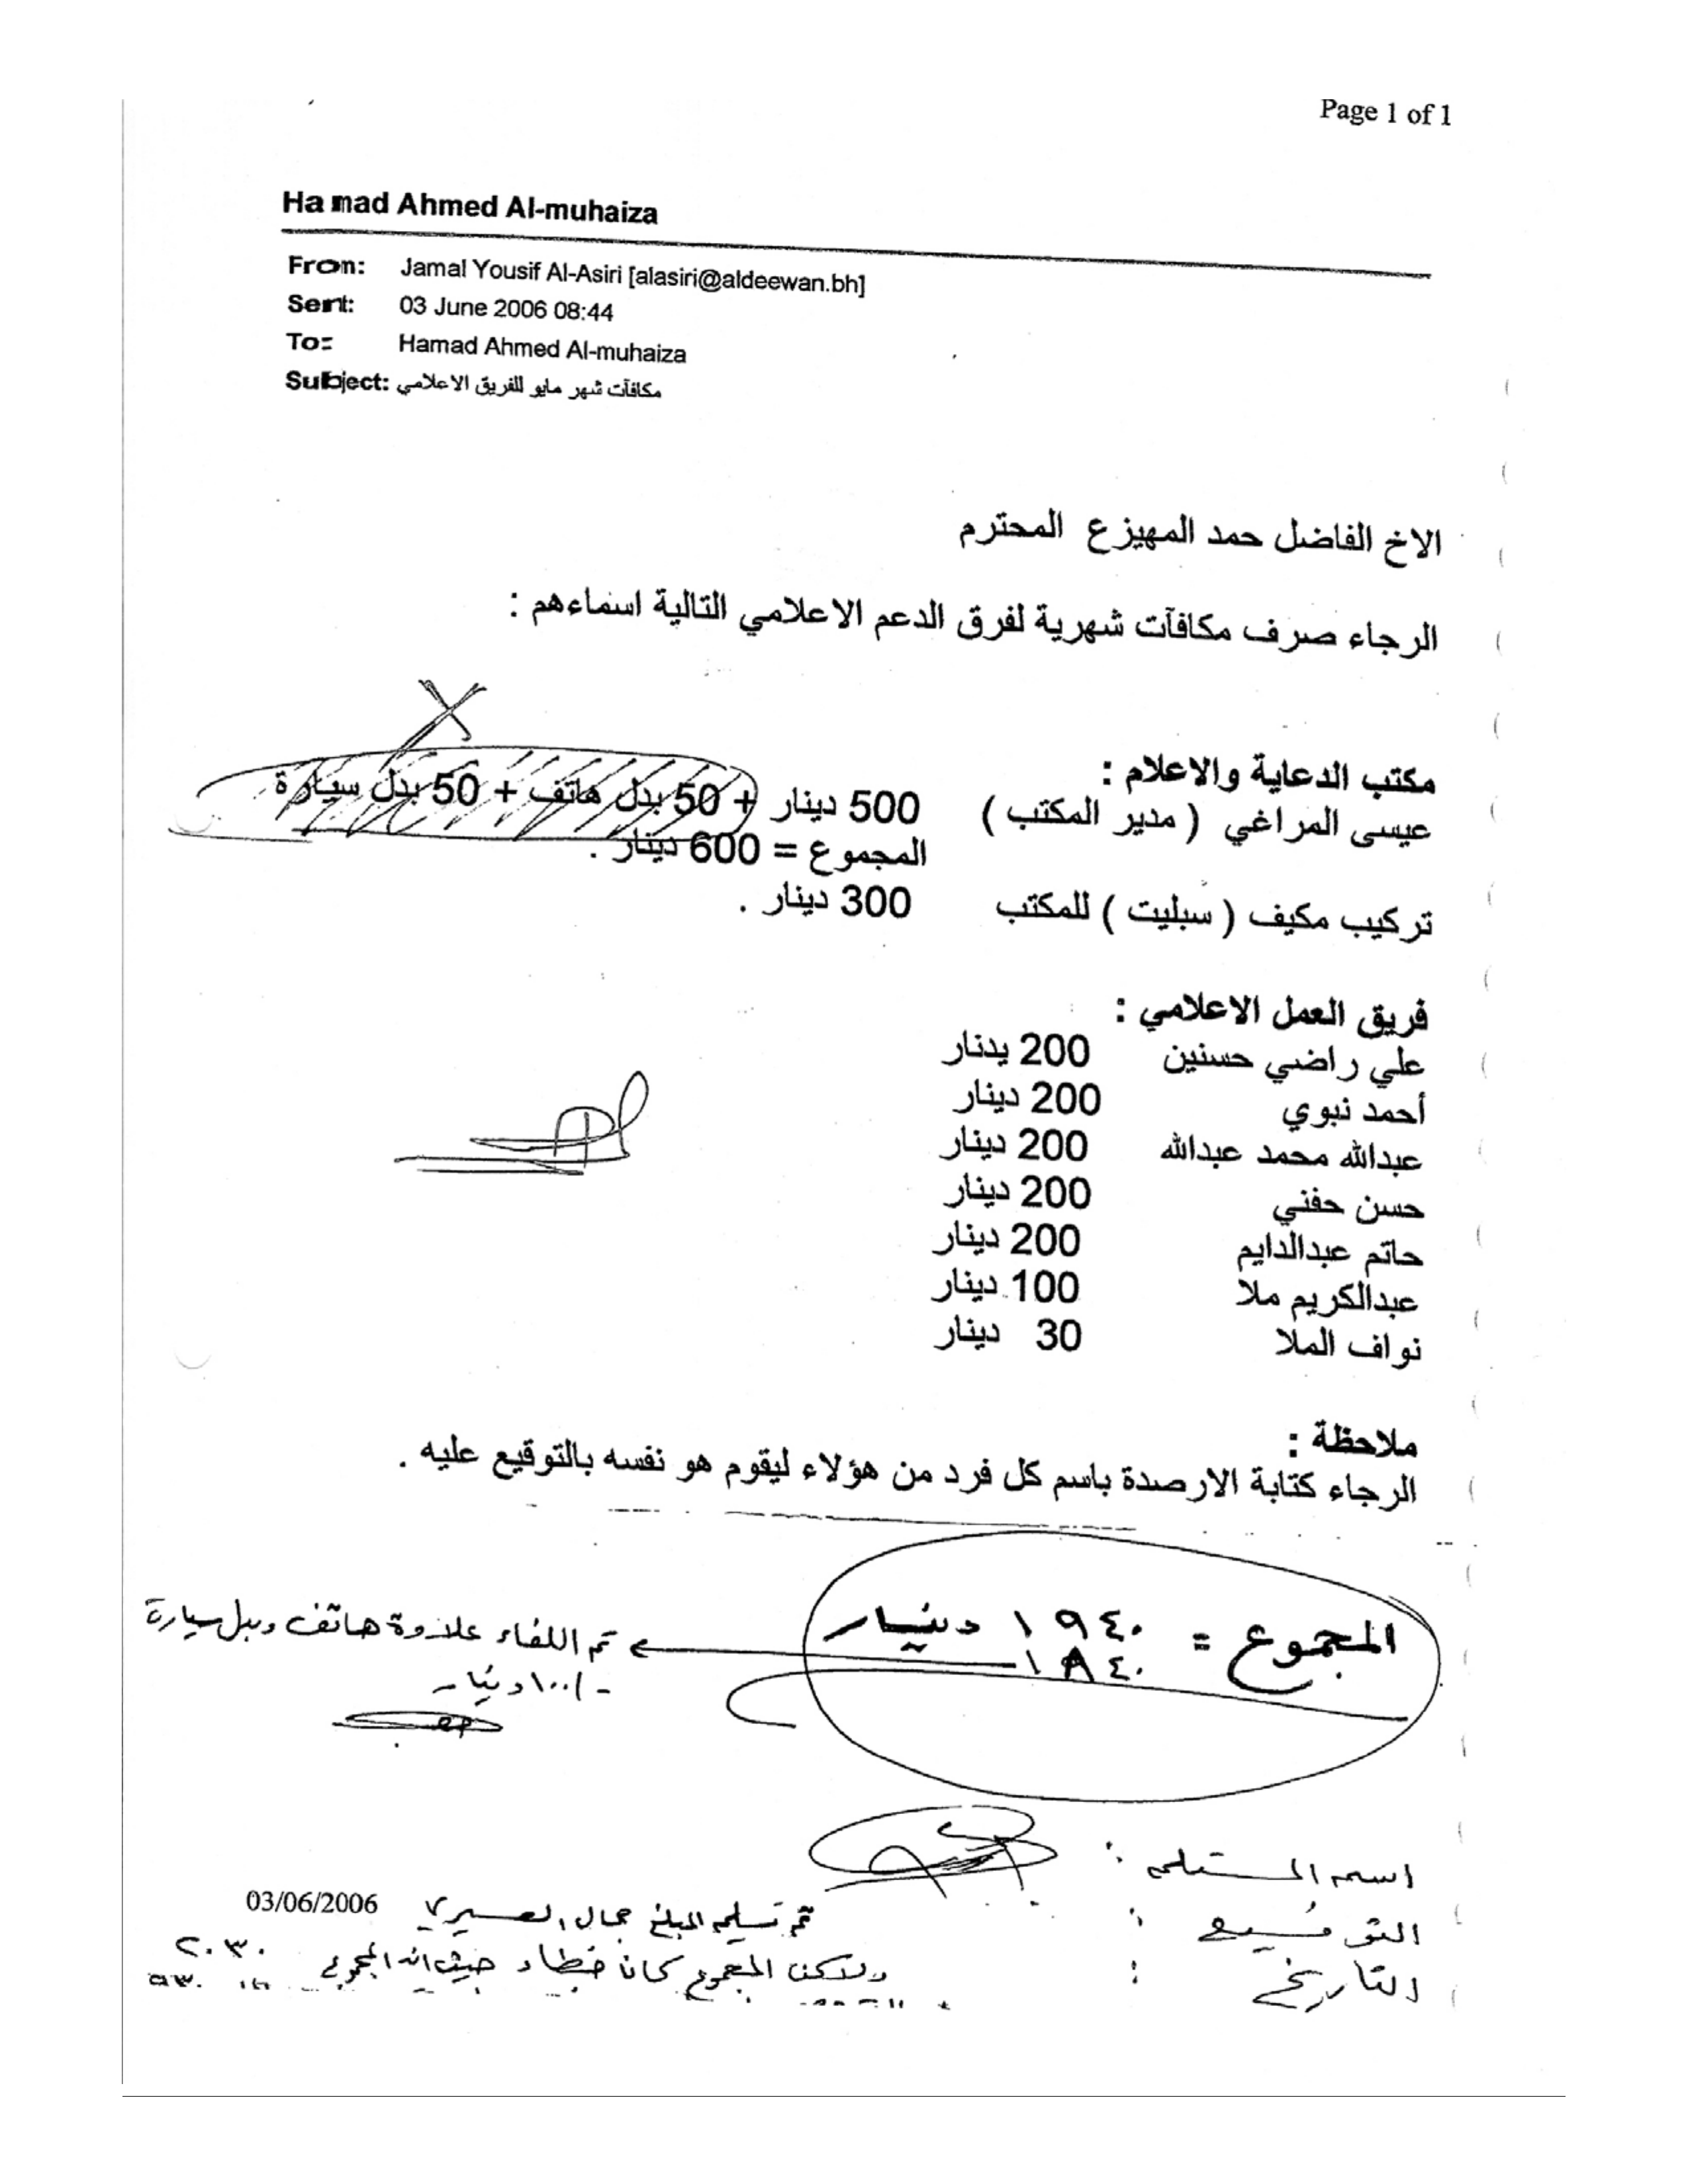 Page 1 of 1
Hamad Ahmed Al-muhaiza
From: Jamal Yousif Al-Asiri [alasiri@aldeewan.bh]
Sent: 03 June 2006 08:44
To: Hamad Ahmed Al-muhaiza
Subject: مكافآت شهر مايو للفريق الاعلامي
الاخ الفاضل حمد المهيزع المحترم
الرجاء صرف مكافآت شهرية لفرق الدعم الاعلامي التالية اسماءهم :
مكتب الدعاية والاعلام :
عيسى المراغي ( مدير المكتب ) 500 دينار + 50 بدل هاتف + 50 بدل سيارة
المجموع = 600 دينار .
تركيب مكيف ( سبليت ) للمكتب 300 دينار .
فريق العمل الاعلامي :
علي راضي حسنين 200 يدنار
أحمد نبوي 200 دينار
عبدالله محمد عبدالله 200 دينار
حسن حفني 200 دينار
حاتم عبدالدايم 200 دينار
عبدالكريم ملا 100 دينار
نواف الملا 30 دينار
ملاحظة :
الرجاء كتابة الارصدة باسم كل فرد من هؤلاء ليقوم هو نفسه بالتوقيع عليه .
المجموع = ١٩٤٠ دينار
١٨٤٠
تم اللغاء علاوة هاتف وبدل سيارة
-/١٠٠ دينار
اسم المستلم :
التوقيع :
التاريخ :
تم تسليم المبلغ جمال العسيري
03/06/2006
ولاكن المجموع كان خطاء حيث انه المجموع ٢٠٣٠